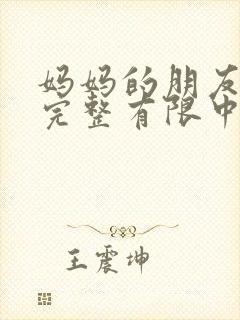 妈妈的朋友
完整有限中
王震坤